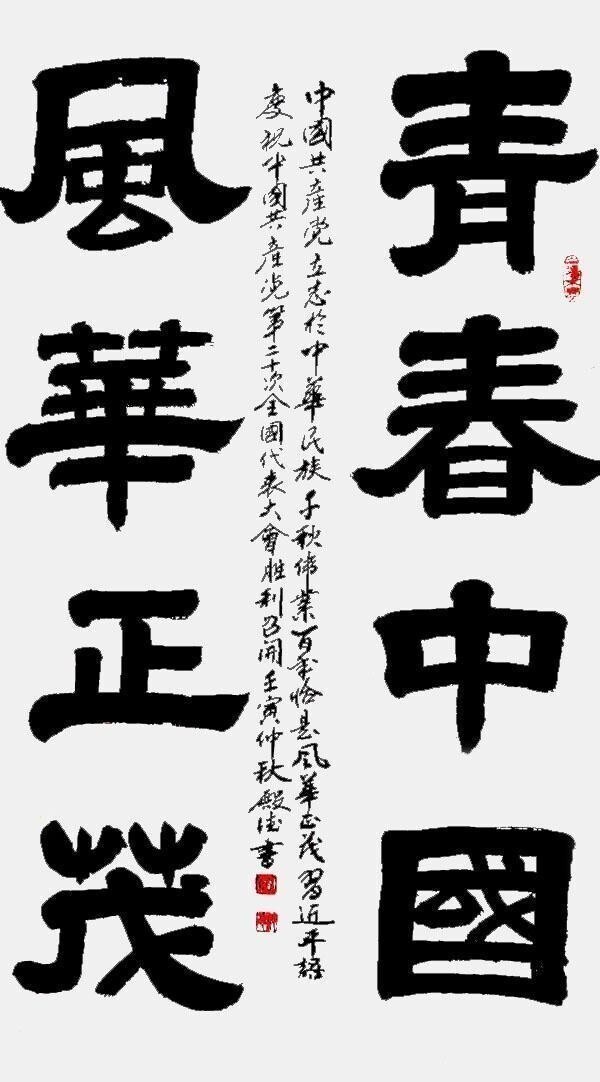 青春中國
中國共產党立志於中華民族千秋偉業百年恰是风華正茂習近平語
慶祝中國共產党第二十次全國代表大會胜利召開壬寅仲秋殿書
風華正茂